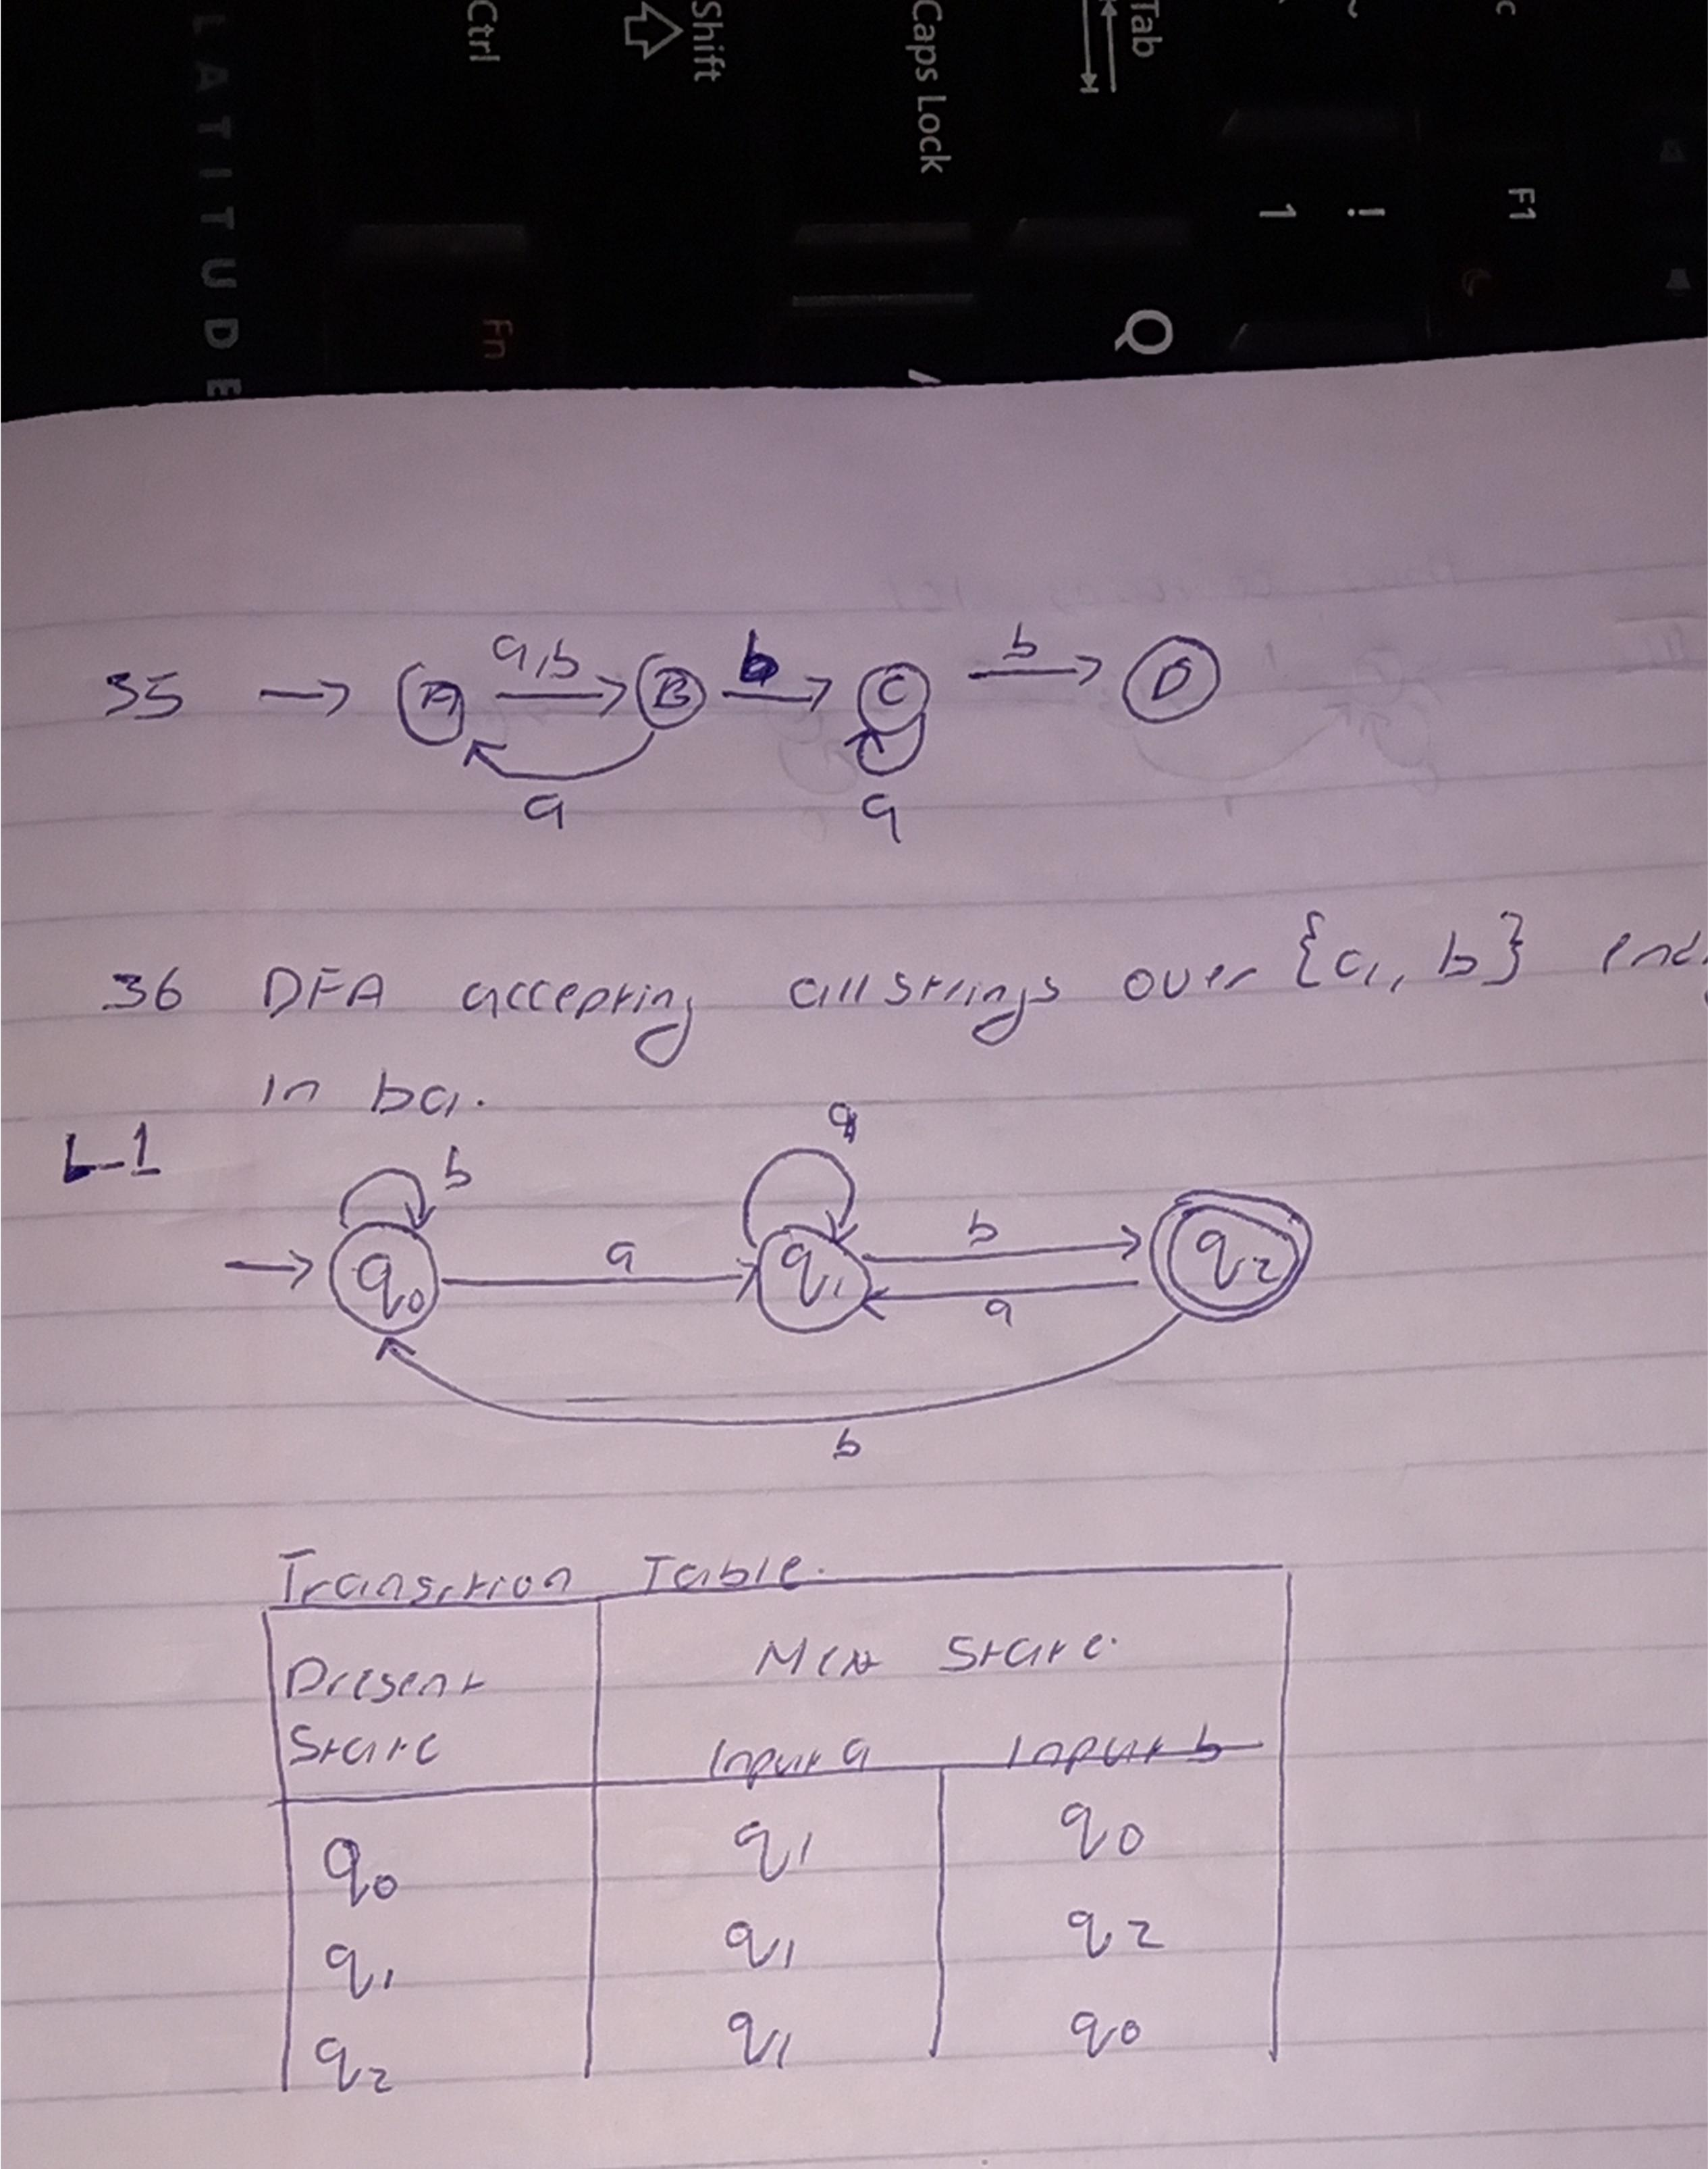 Ctrl
Shift
Caps Lock
Tab
1
!
F1
LATITUDE
Fn
Q
35 → A a,b B b C b D
a a
36 DFA accepting all strings over {a, b}
in ba.
L-1
b a
q0 a q1 b q2
a
b
Transition Table.
Present
State
Next State.
Input a Input b
q0 q1 q0
q1 q1 q2
q2 q1 q0